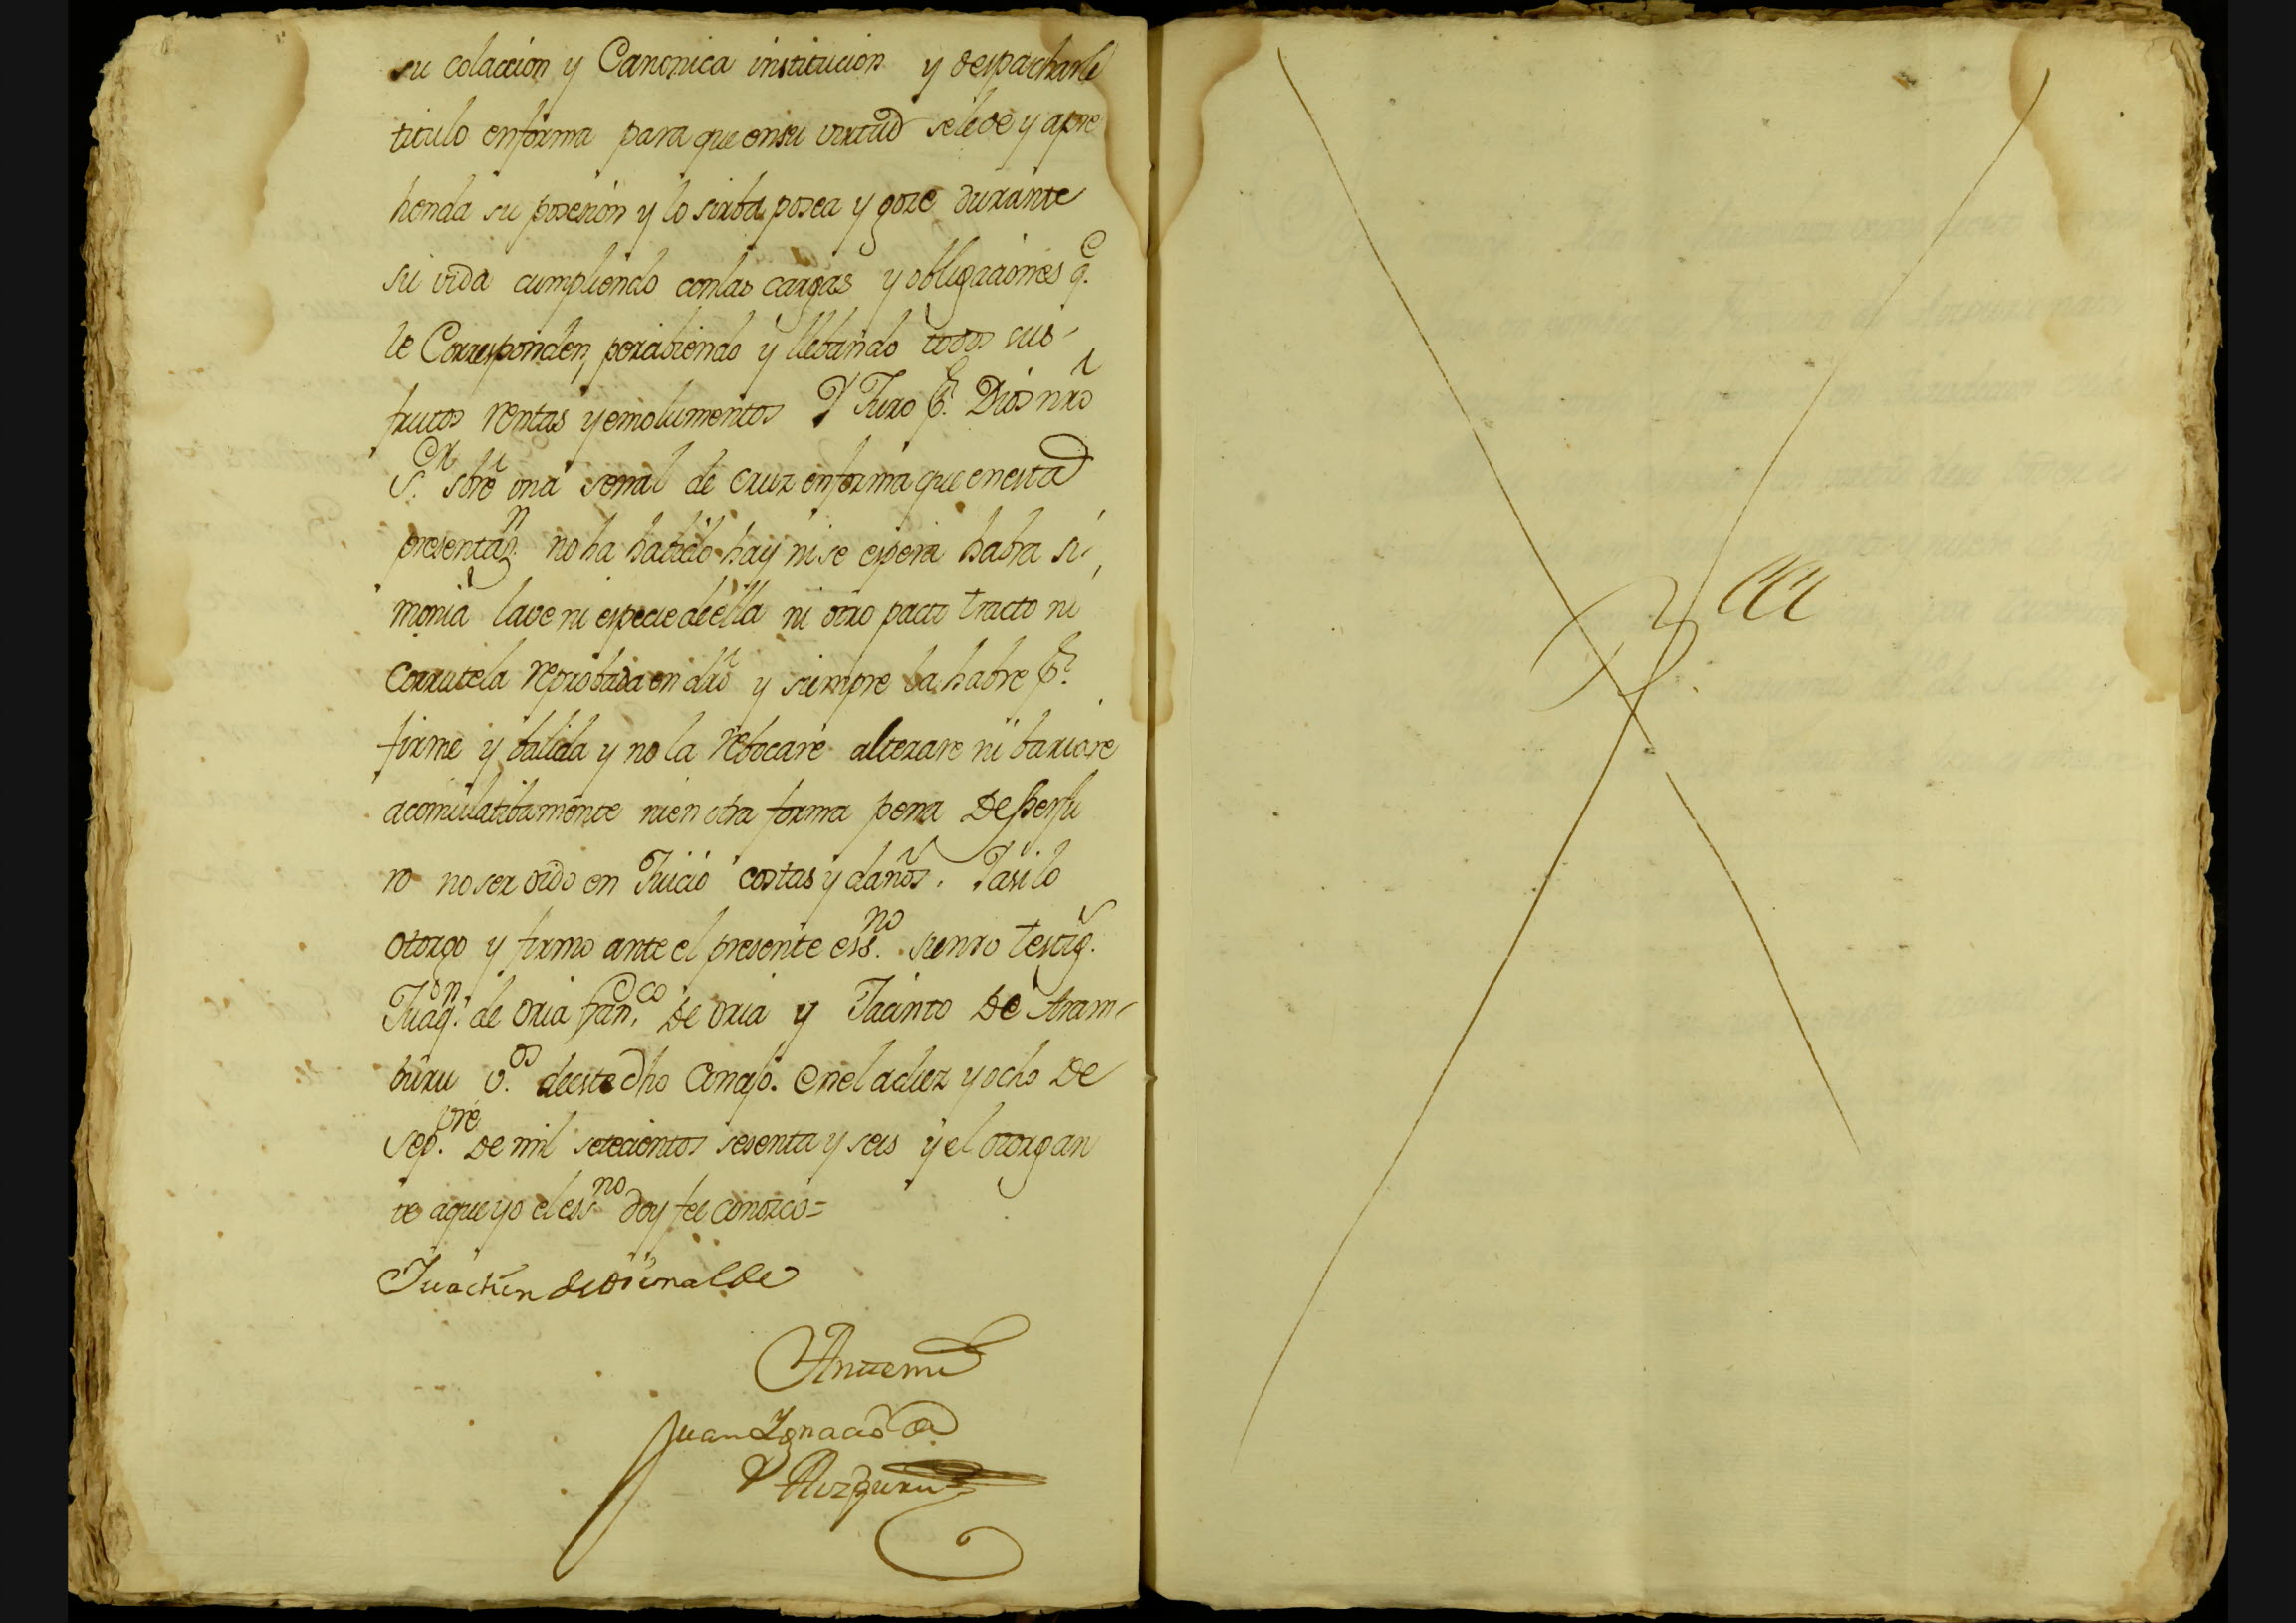 su colaccion y Canonica institucion y despacharle
titulo enforma para que ensu virtud sele de y apre
henda su posesion y lo sirba posea y goze durante
su vida cumpliendo conlas cargas y obligaciones q.e
le Corresponden, perciviendo y llebando todos sus
frutos rentas y emolumentos Y Juro p.r Dios nrõ
S.r sbrê una senal de cruz enforma que enesta
presentaz.n no ha habido hay ni se espera habra si
monia lave ni especie deella ni otro pacto tracto ni
Corrutela reprobada en drõ y siempre la habre p.r
firme y balida y no la rebocare alterare ni bariare
acomulatibamente nien otra forma pena De perju
ro no ser oido en Juicio costas y daños. Y asi lo
otorgo y firmo ante el presente ess.no siendo testig.s
Juaq.n de oria fran.co De oria y Jacinto De Aram
buru v.os deeste dho Conzejo. Enel a diez y ocho De
Sep.vre De mil setecientos sesenta y seis y el otorgan
te aque yo el ess.no doy fee conozco=
Juachin de
Antemi
Juan Ygnacio